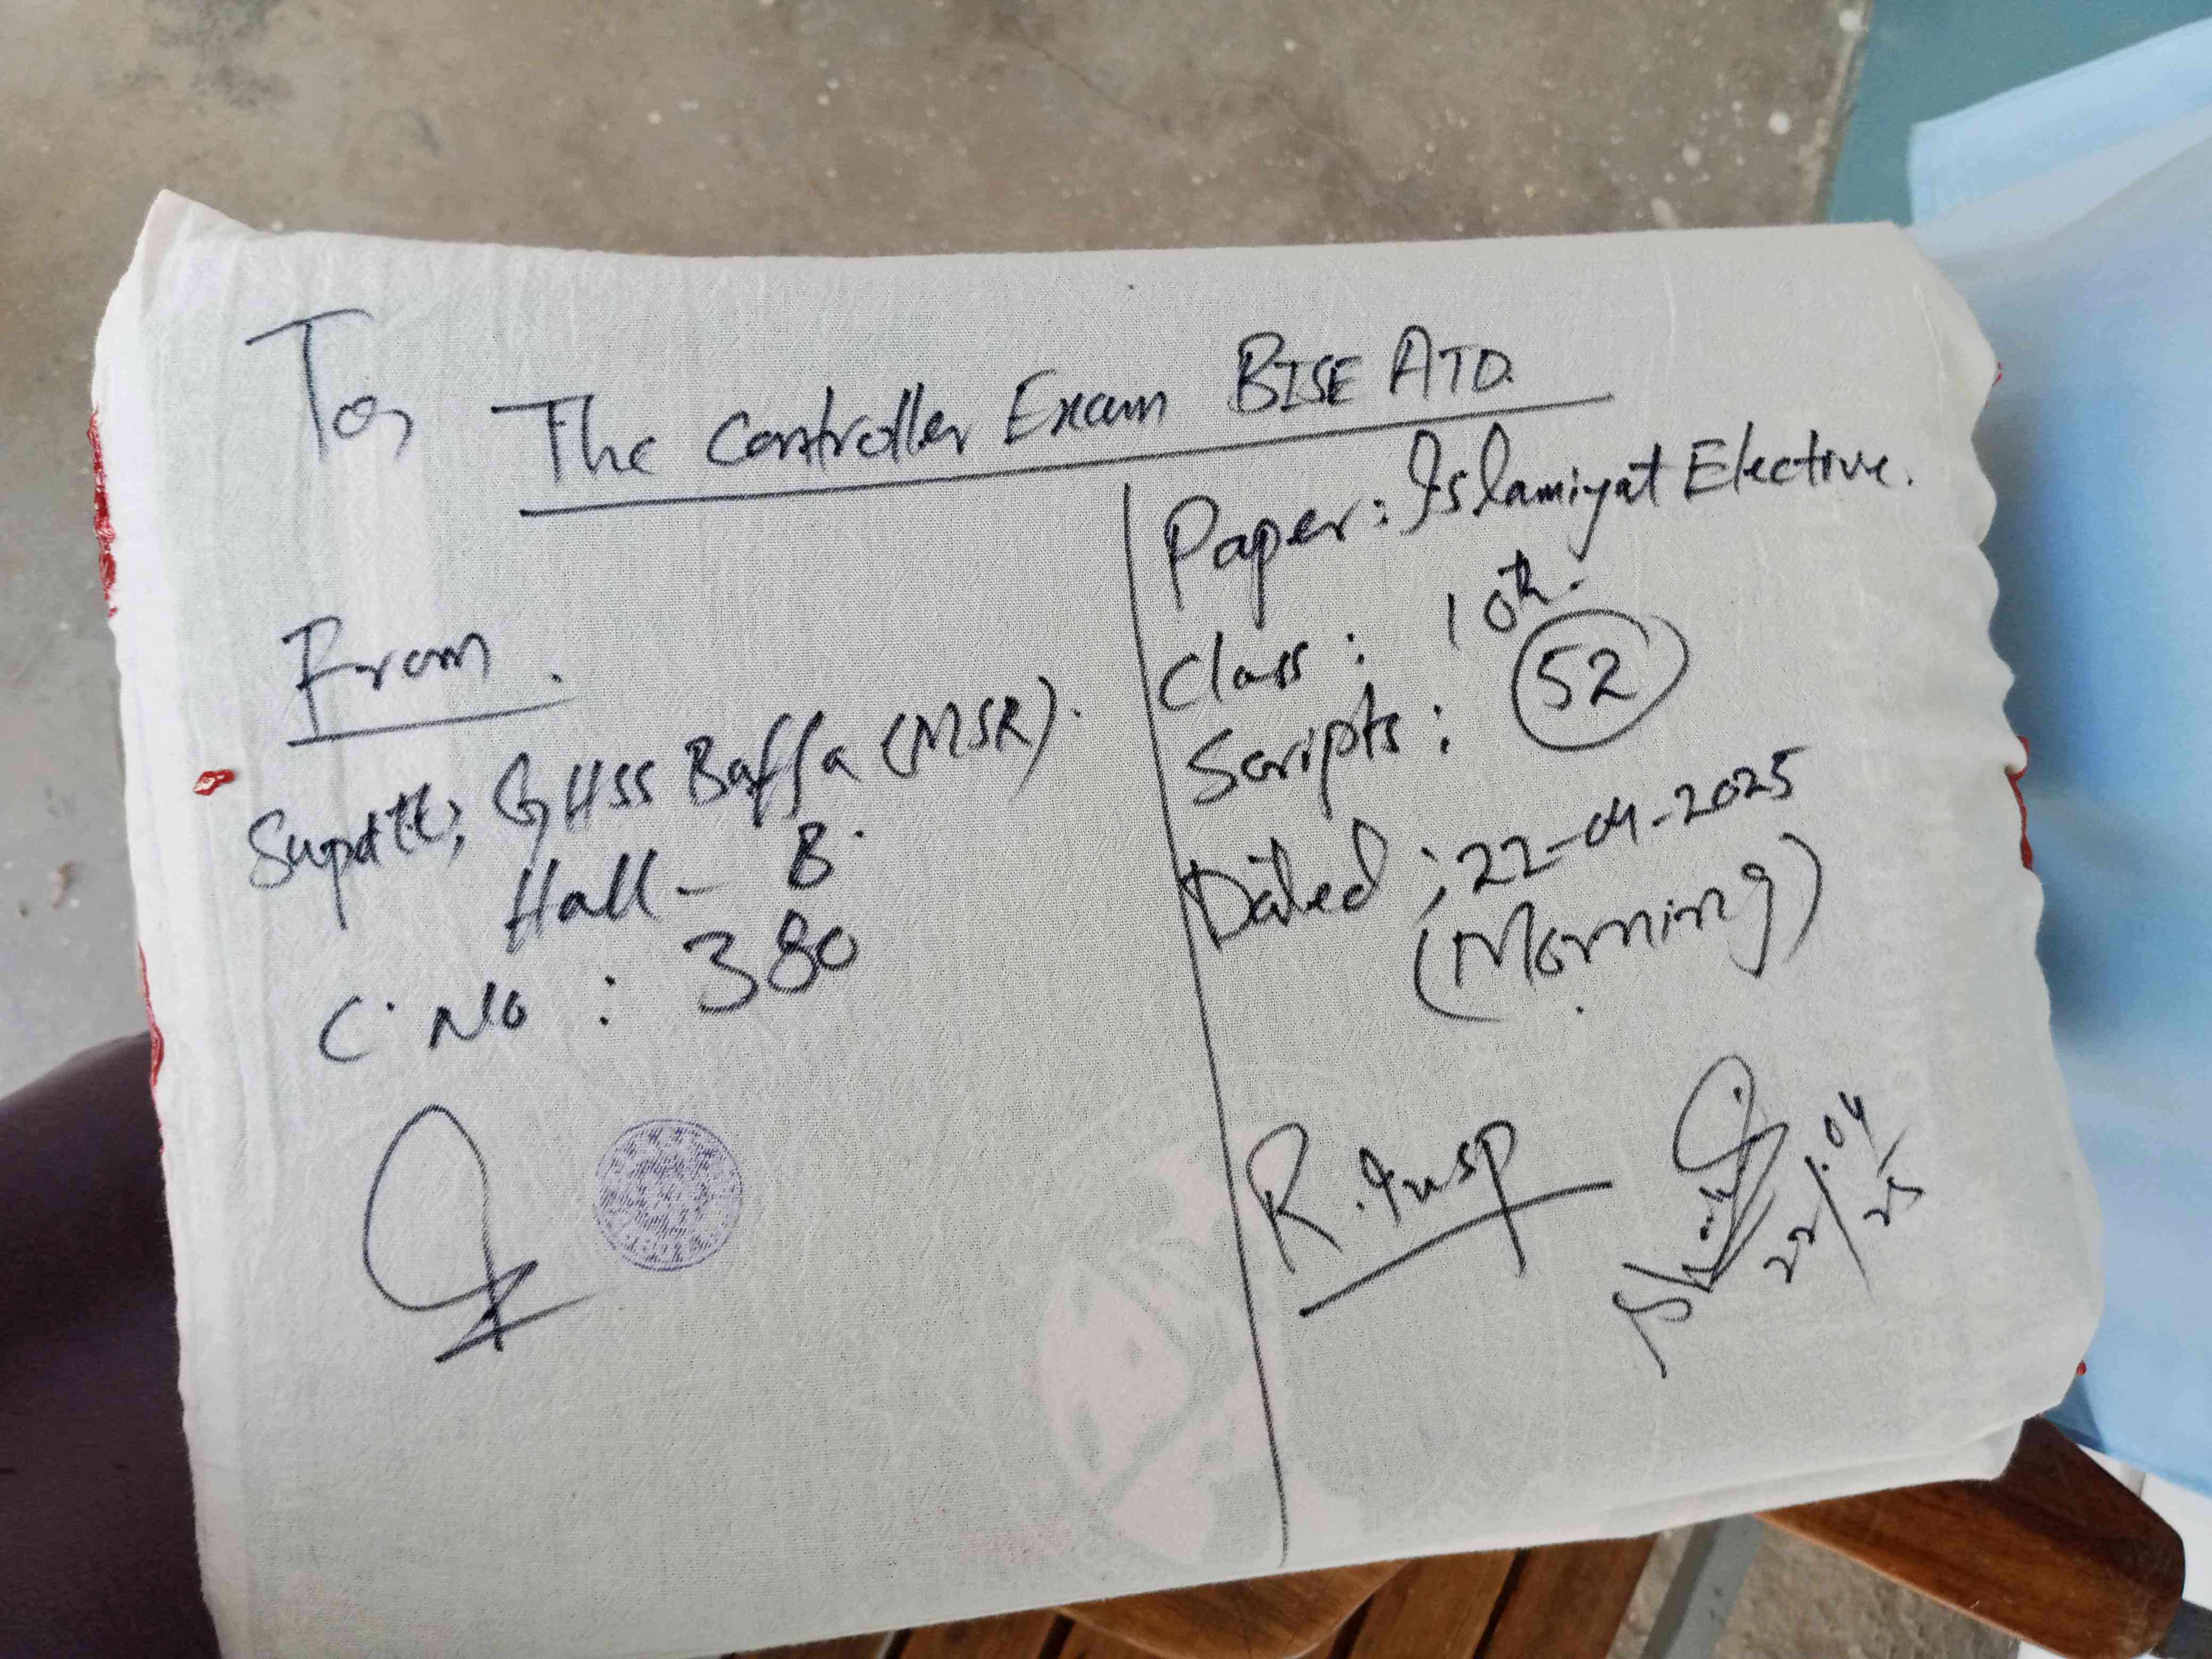 To,
The Controller Exam BISE ATD.
From.
Supdtt; GHSS Baffa (MSR).
Hall - B.
C. No : 380
Paper: Islamiyat Elective.
Class : 10th.
Scripts : 52
Dated ; 22-04-2025
(Morning)
R. Insp
22/04/25